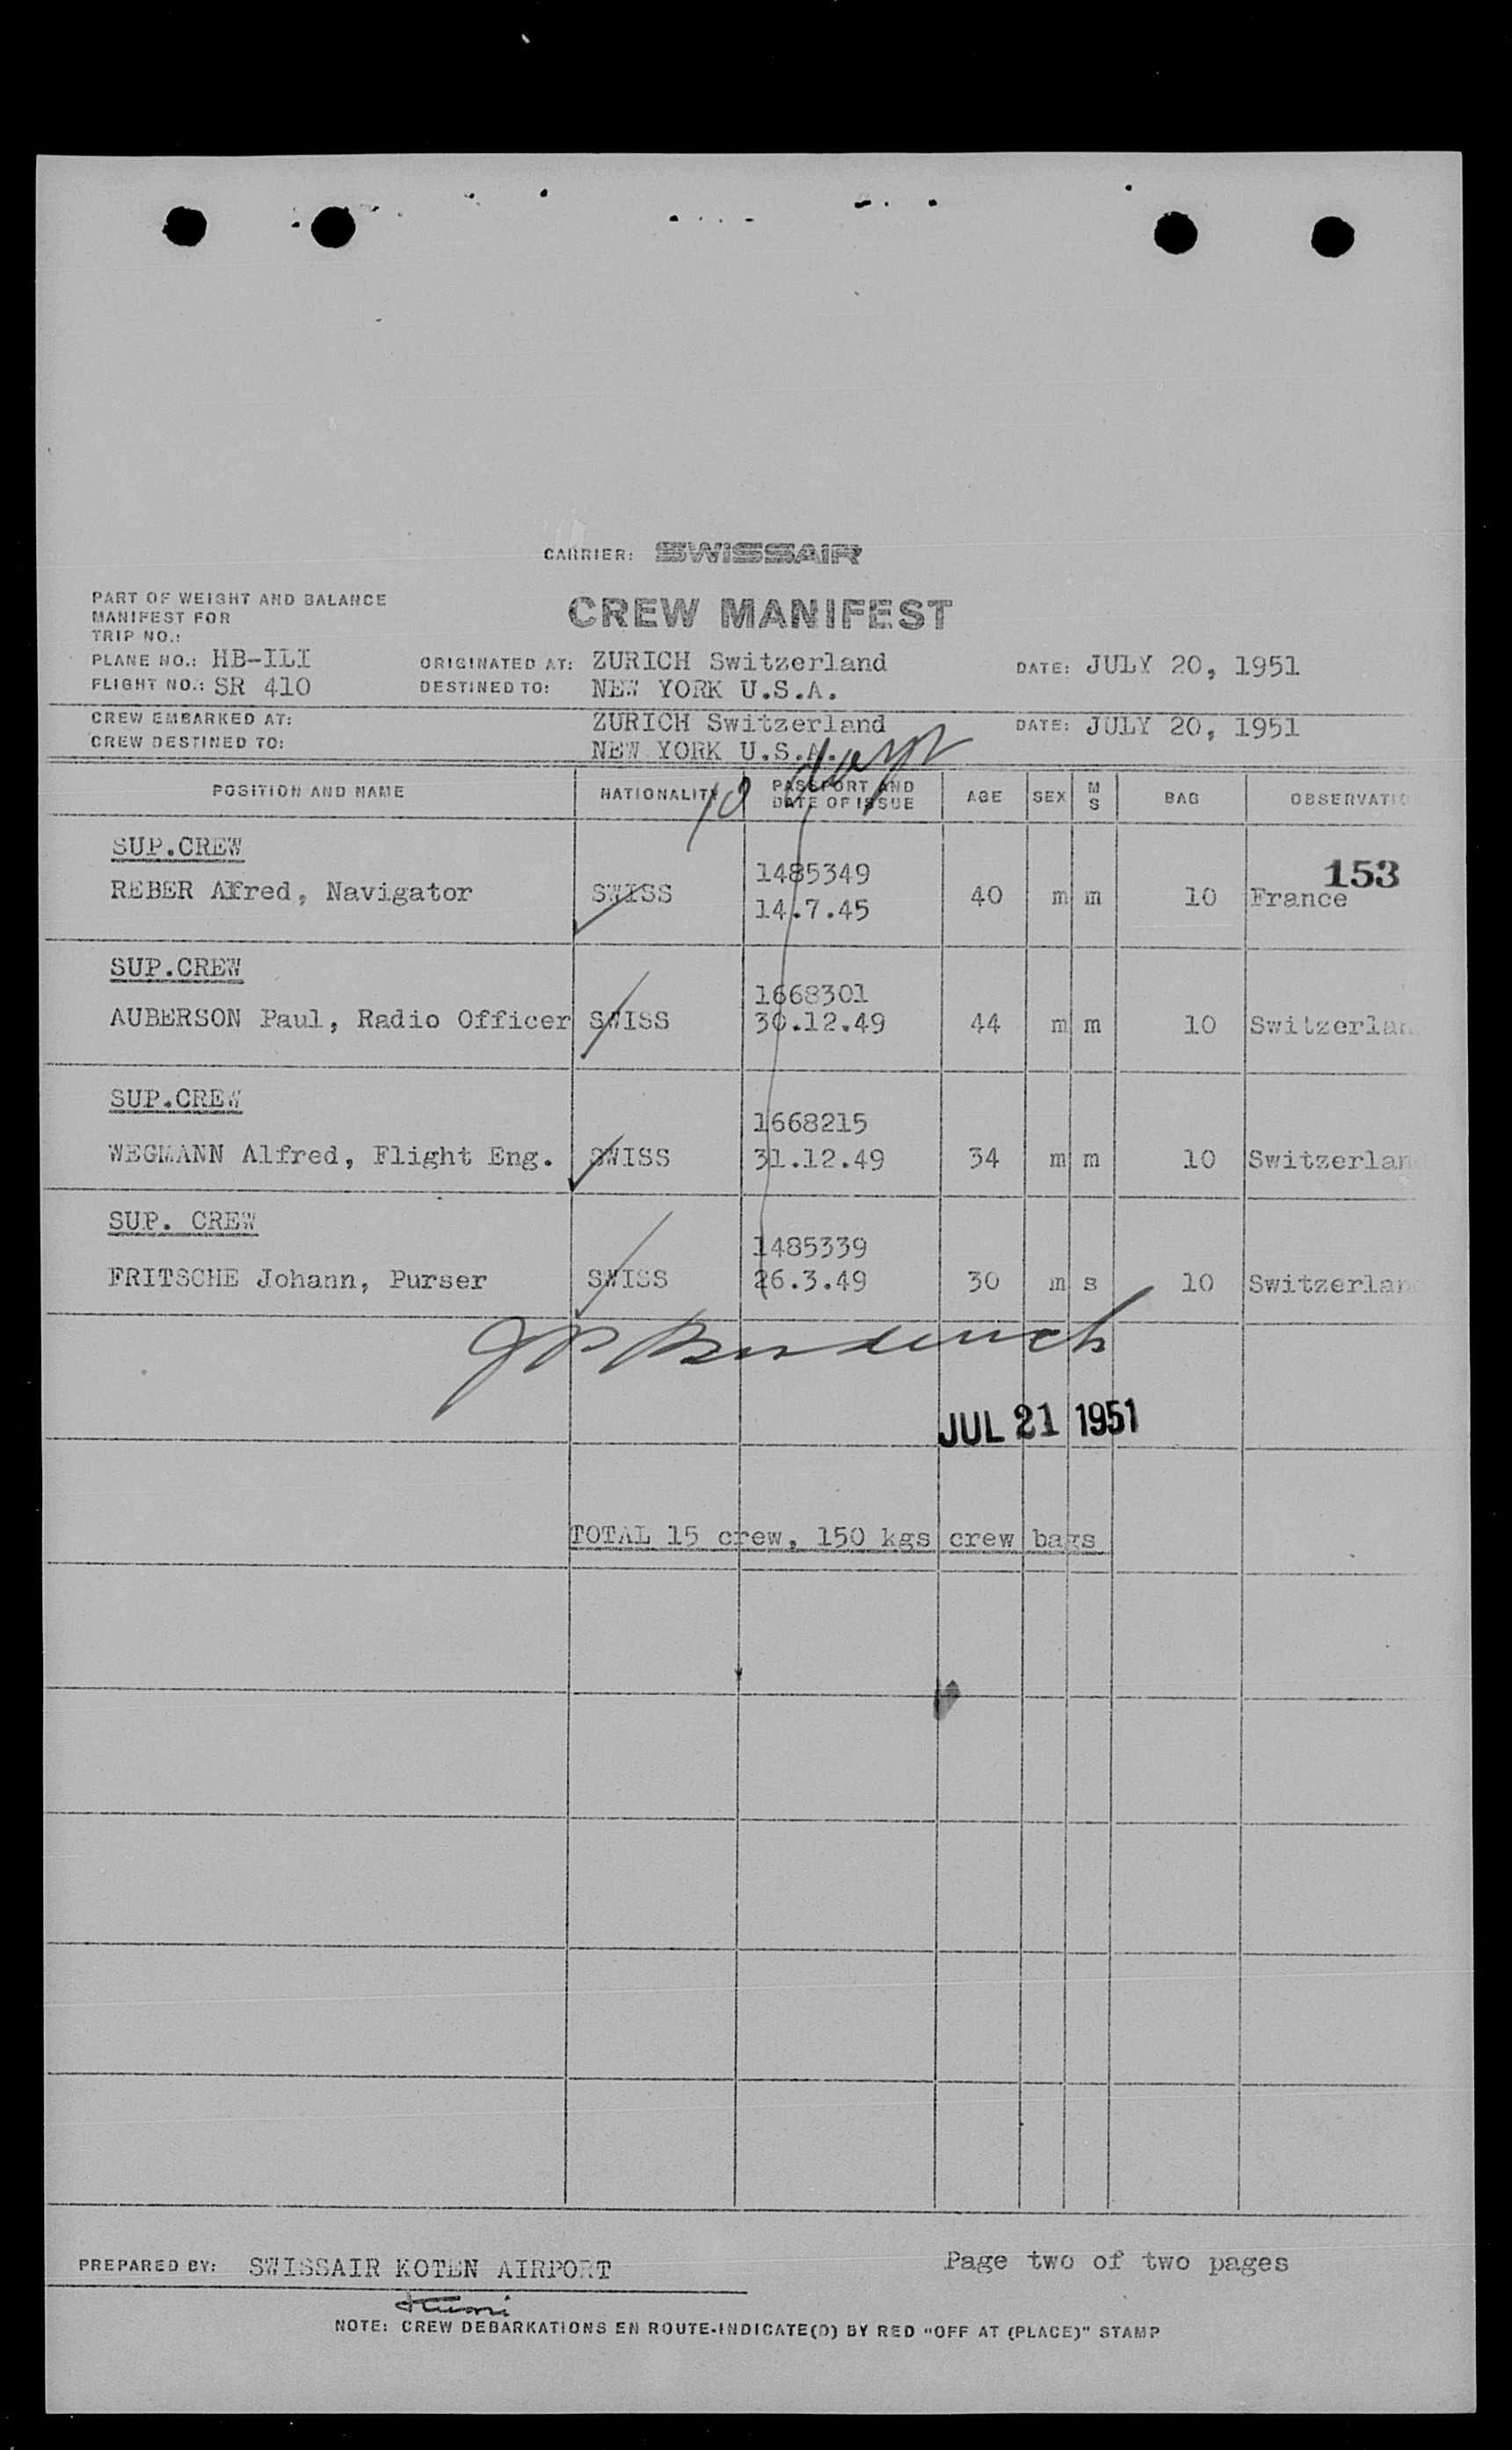 CARRIER: SWISSAIR
PART OF WEIGHT AND BALANCE
MANIFEST FOR
TRIP NO.:
CREW MANIFEST
PLANE NO.: HB-ILI ORIGINATED AT: ZURICH Switzerland DATE: JULY 20, 1951
FLIGHT NO.: SR 410 DESTINED TO: NEW YORK U.S.A.
CREW EMBARKED AT: ZURICH Switzerland DATE: JULY 20, 1951
CREW DESTINED TO: NEW YORK U.S.A.
10 days
POSITION AND NAME NATIONALITY PASSPORT AND DATE OF ISSUE AGE SEX M S BAG OBSERVATIO
SUP.CREW
153
1485349
REBER Alfred, Navigator SWISS 14.7.45 40 m m 10 France
SUP.CREW
1668301
AUBERSON Paul, Radio Officer SWISS 30.12.49 44 m m 10 Switzerlan
SUP.CREW
1668215
WEGMANN Alfred, Flight Eng. SWISS 31.12.49 34 m m 10 Switzerlan
SUP. CREW
1485339
FRITSCHE Johann, Purser SWISS 26.3.49 30 m s 10 Switzerlan
JUL 21 1951
TOTAL 15 crew, 150 kgs crew bags
PREPARED BY: SWISSAIR KOTEN AIRPORT Page two of two pages
NOTE: CREW DEBARKATIONS EN ROUTE-INDICATE(D) BY RED "OFF AT (PLACE)" STAMP